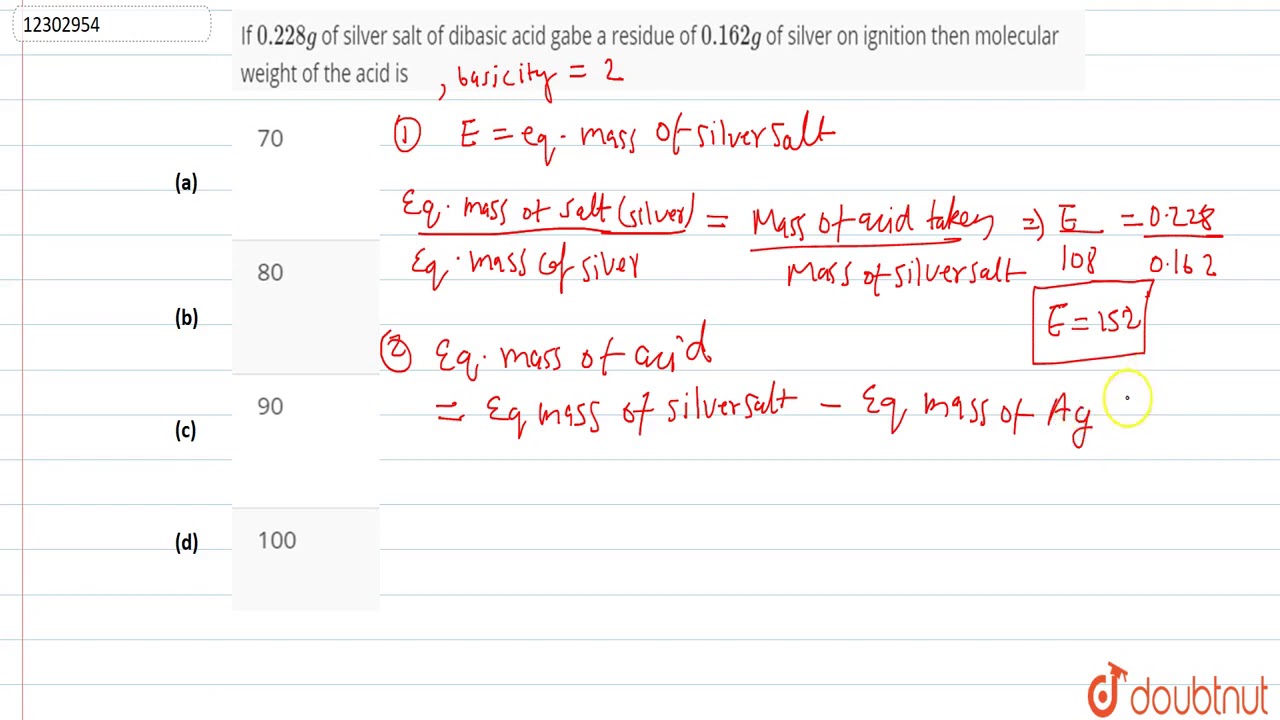 12302954
If 0.228g of silver salt of dibasic acid gabe a residue of 0.162g of silver on ignition then molecular
weight of the acid is , basicity = 2
(a) 70
(b) 80
(c) 90
(d) 100
① E = eq. mass of silver salt
Eq. mass of salt (silver) / Eq. mass of silver = Mass of acid taken / Mass of silver salt ⇒ E / 108 = 0.228 / 0.162
E = 152
② Eq. mass of acid
= Eq mass of silver salt – Eq mass of Ag
doubtnut